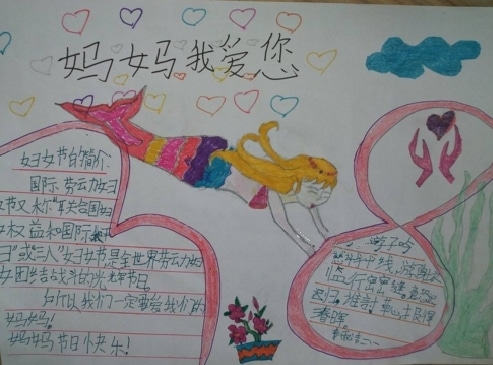 妈妈我爱您
妇女节的简介:
国际劳动妇
女节又称"联合国妇
女权益和国际
日"或"三八"妇女节是全世界劳动妇
女团结战斗的光辉节日。
所以我们一定要给我们的
妈妈!
妈妈节日快乐!
游子吟
线,游
临行密密缝,意恐
迟归。谁言寸草心,报得
春晖